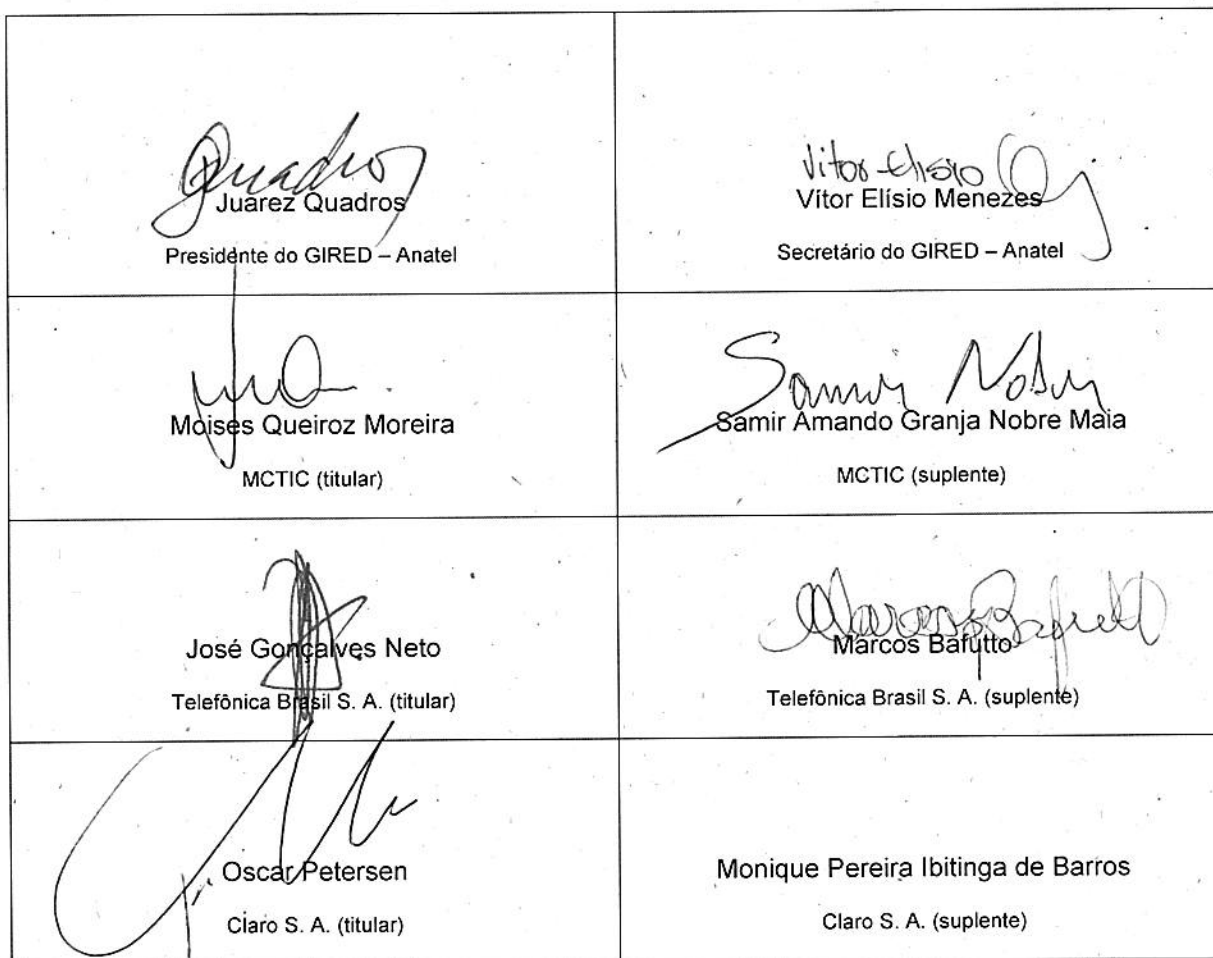 Quadros
Juarez Quadros
Presidente do GIRED – Anatel
Vitor Elisio
Vítor Elísio Menezes
Secretário do GIRED – Anatel
Moises Queiroz Moreira
MCTIC (titular)
Samir Nobre
Samir Amando Granja Nobre Maia
MCTIC (suplente)
José Gonçalves Neto
Telefônica Brasil S. A. (titular)
Marcos Bafutto
Marcos Bafutto
Telefônica Brasil S. A. (suplente)
Oscar Petersen
Claro S. A. (titular)
Monique Pereira Ibitinga de Barros
Claro S. A. (suplente)